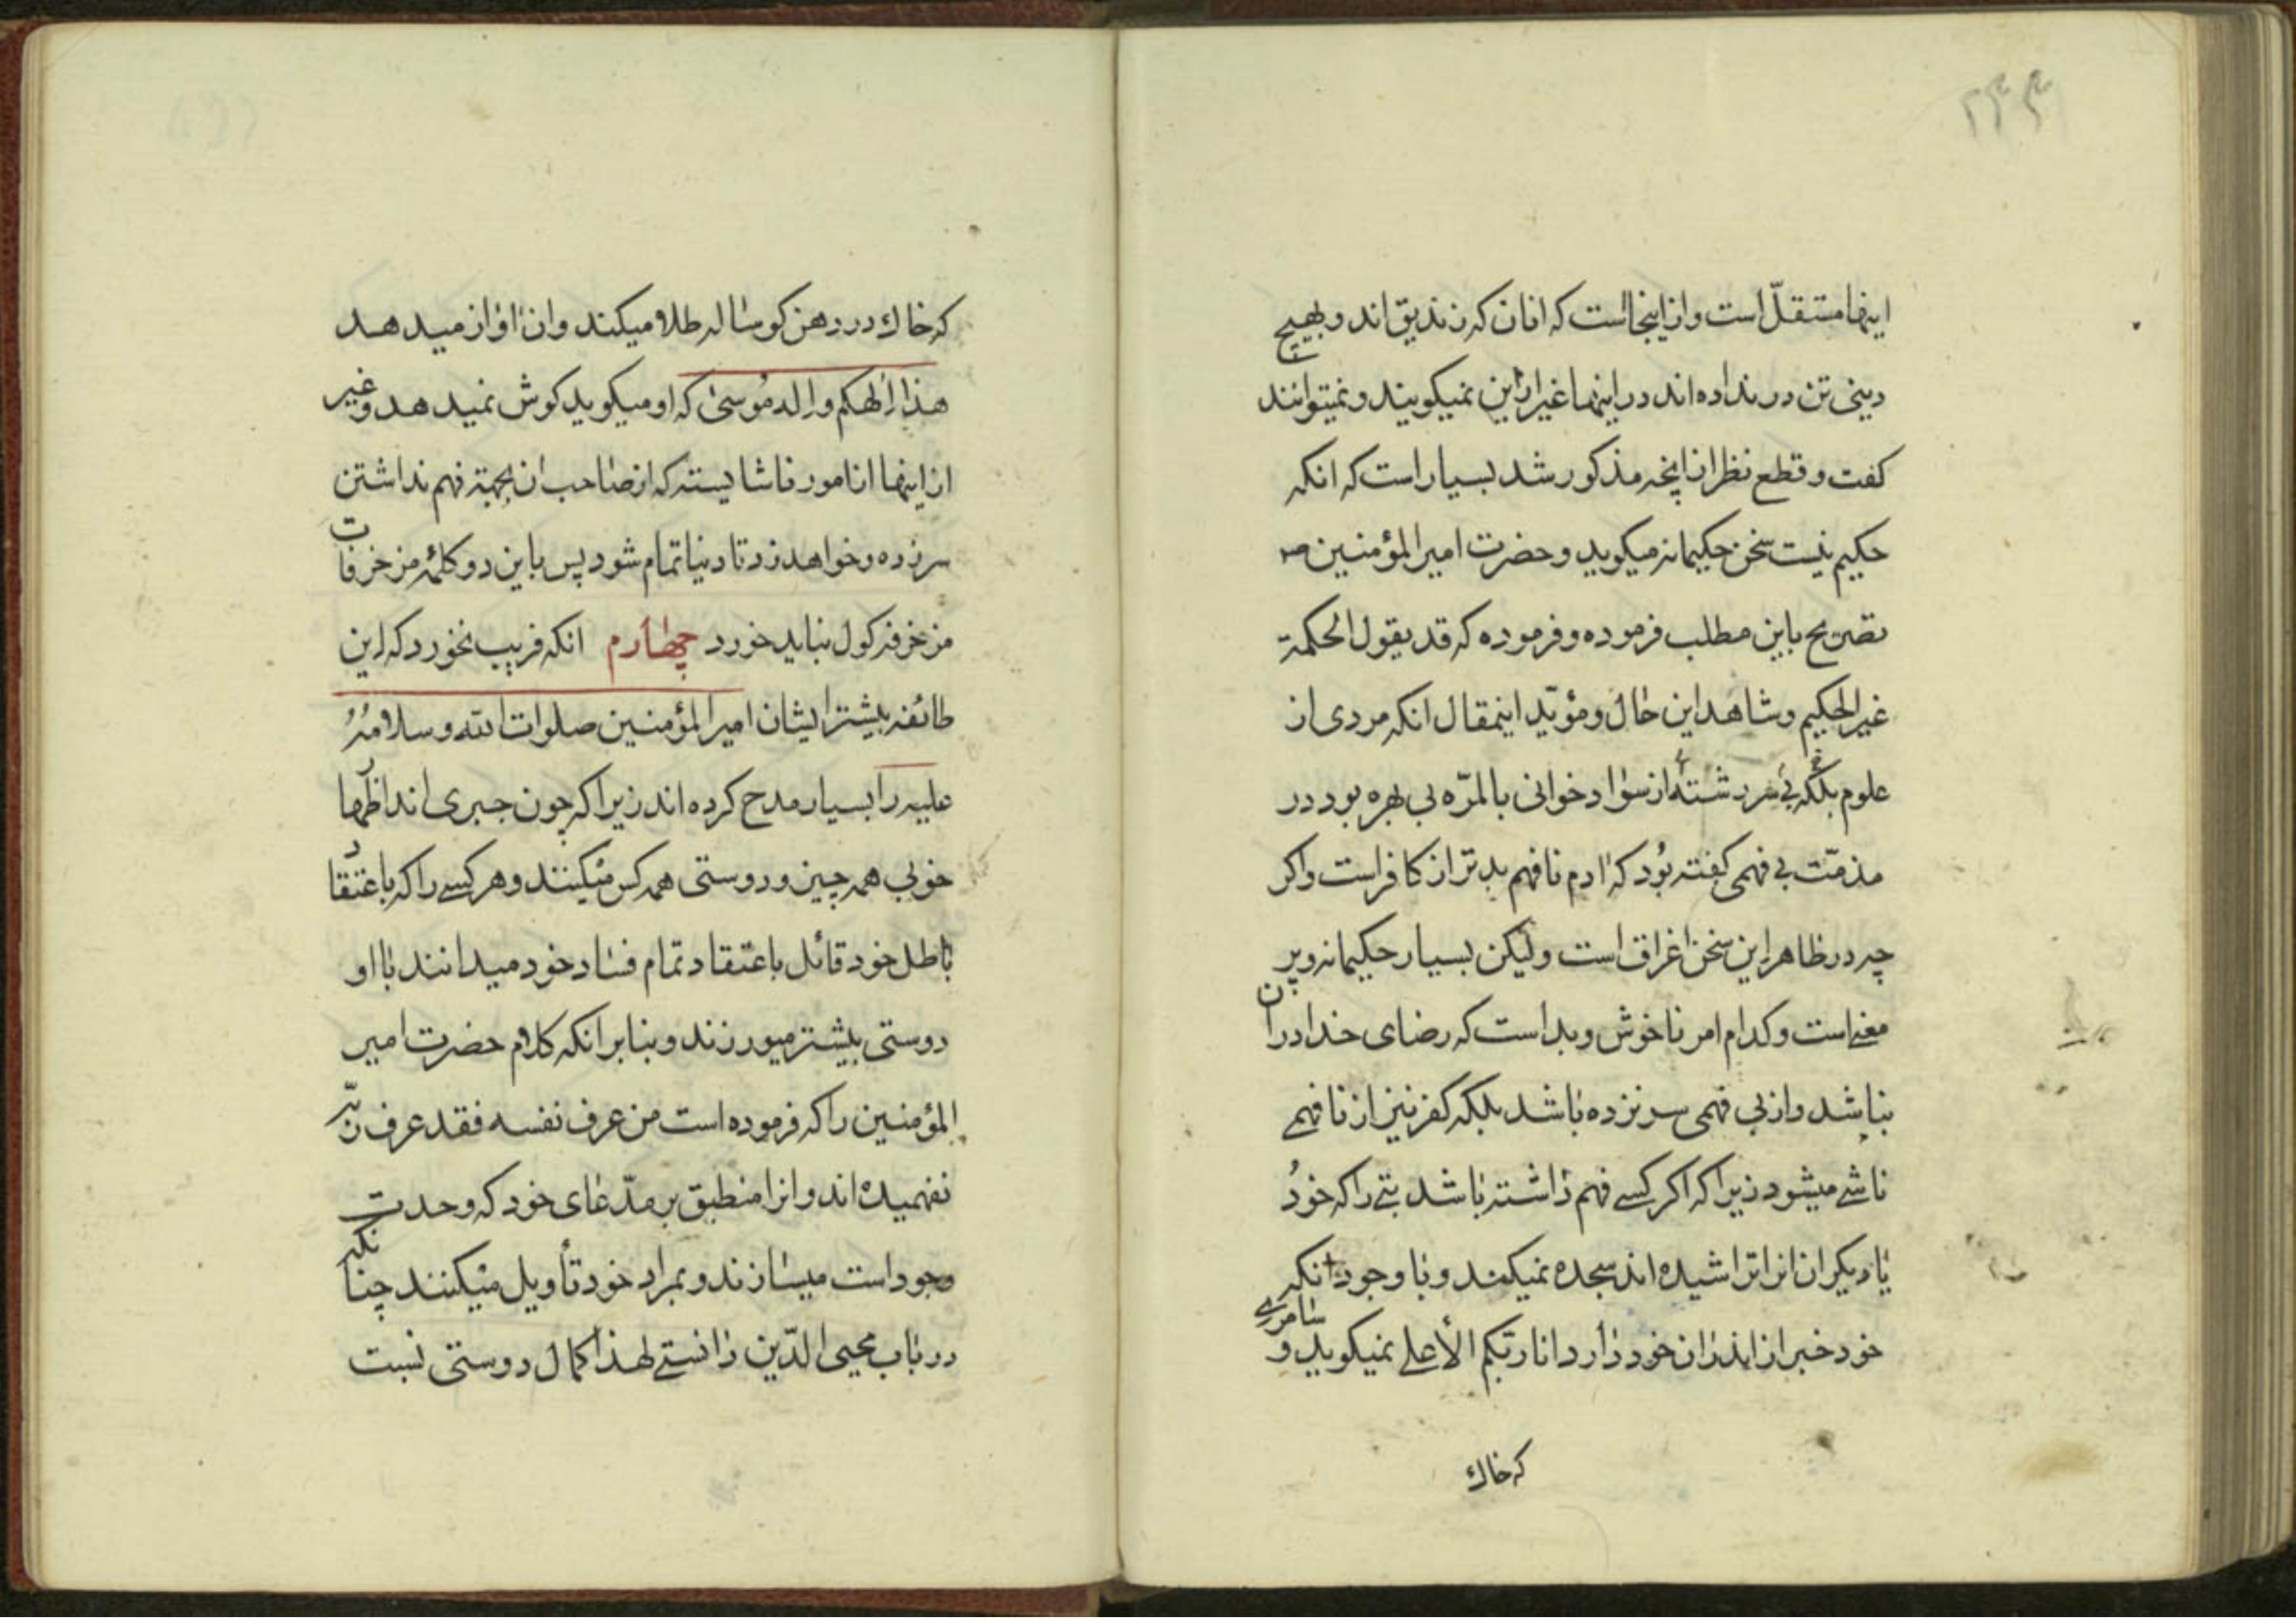 ۲۴۴
اینها مستقلّ است و از اینجا است که انان که زندیق اند و بهیچ
دینی تن در نداده اند در اینها غیر ازین نمیکویند و نمیتوانند
کفت و قطع نظر از انچه مذکور شد بسیار است که انکه
حکیم نیست سخن حکیمانه میکوید و حضرت امیر المؤمنین ص
تصریح باین مطلب فرموده و فرموده که قد یقول الحکمة
غیر الحکیم و شاهد این حال و مؤیّد اینمقال انکه مردی از
علوم بلکه بی سر رشتهٔ از سواد خوانی بالمرّه بی بهره بود در
مذمّت بی فهمی کفته بُود که ادم نافهم بدتر از کافر است و اکر
چه در ظاهر این سخن اغراق است ولیکن بسیار حکیمانه و پر
معنی است و کدام امر ناخوش و بد است که رضای خدا در ان
نباشد و از بی فهمی سر نزده باشد بلکه کفر نیز از نافهمی
ناشی میشود زیرا که اکر کسی فهم داشته باشد بتی را که خودُ
یا دیکران انرا تراشیده اند سجده نمیکند و با وجود انکه
خود خبر از اندزان خود دارد انا ربّکم الأعلی نمیکوید و سامری
که خاك
که خاك در دهن کوساله طلا میکند و ان اواز میدهد
هذا إلهکم و إله مُوسیٰ که او میکوید کوش نمیدهد و غیر
از اینها از امور ناشایسته که از صاحب ان بجهة فهم نداشتن
سر زده و خواهد زد تا دنیا تمام شود پس باین دو کلمهٔ مزخرفات
مزخرفه کول نباید خورد چهارم انکه فریب نخورد که این
طائفه بیشتر ایشان امیر المؤمنین صلوات الله و سلامُهُ
علیه را بسیار مدح کرده اند زیرا که چون جبری اند اظهار
خوبی همه چیز و دوستی همه کس میکنند و هر کسی را که باعتقاد
باطل خود قائل باعتقاد تمام فساد خود میدانند با او
دوستی بیشتر میورزند و بنابر انکه کلام حضرت امیر
المؤمنین را که فرموده است من عرف نفسه فقد عرف ربّه
نفهمیده اند و انرا منطبق بر مدّعای خود که وحدت
وجود است میسازند و بمراد خود تأویل میکنند چنانکه
در باب محیی الدّین دانستی لهذا کمال دوستی نسبت